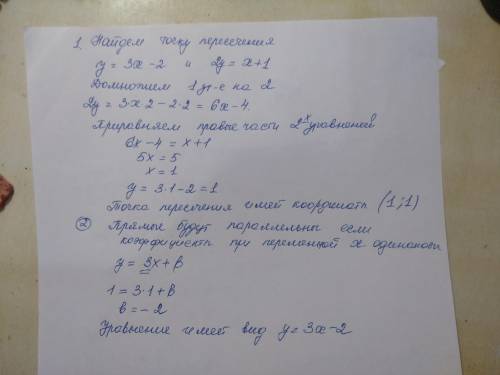 1. Найдем точку пересечения
y = 3x - 2 и 2y = x+1
Домножим 1 ур-е на 2
2y = 3·x·2 - 2·2 = 6x - 4.
Приравняем правые части 2ˣ уравнений
6x - 4 = x + 1
5x = 5
x = 1
y = 3·1 - 2 = 1
Точка пересечения имеет координаты (1;1)
② Прямые будут параллельны если
коэффициенты при переменной x одинаковы
y = 3x + в
1 = 3·1 + в
в = - 2
Уравнение имеет вид y = 3x - 2